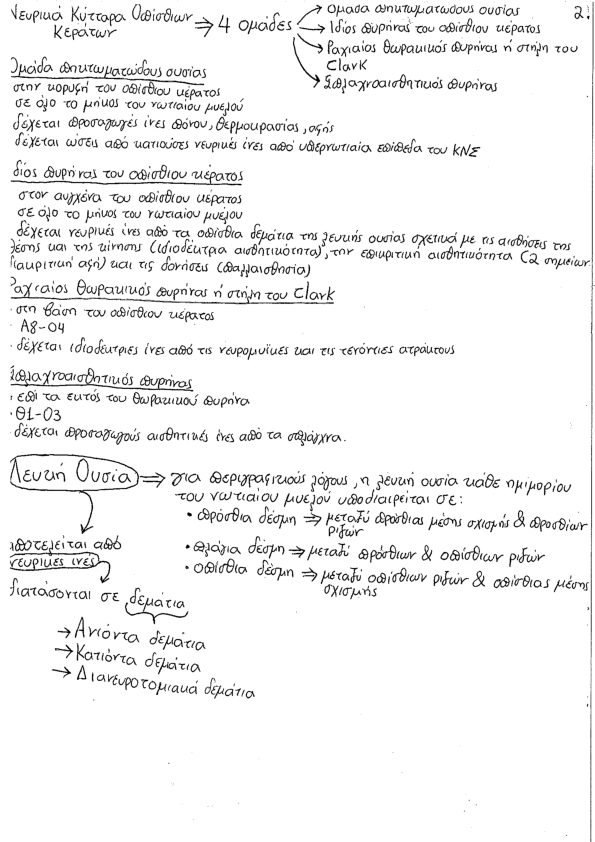 Νευρικά Κύτταρα Οπίσθιων Κεράτων ⇒ 4 ομάδες
2.
→ Ομάδα πηκτωματώδους ουσίας
→ Ιδίος πυρήνας του οπίσθιου κέρατος
→ Ραχιαίος θωρακικός πυρήνας ή στήλη του Clark
→ Σπλαχνοαισθητικός πυρήνας
Ομάδα πηκτωματώδους ουσίας
στην κορυφή του οπίσθιου κέρατος
σε όλο το μήκος του νωτιαίου μυελού
δέχεται προσαγωγές ίνες πόνου, θερμοκρασίας, αφής
δέχεται ώσεις από κατιούσες νευρικές ίνες από υπερνωτιαία επίπεδα του ΚΝΣ
δίος πυρήνας του οπίσθιου κέρατος
στον αυχένα του οπίσθιου κέρατος
σε όλο το μήκος του νωτιαίου μυελού
δέχεται νευρικές ίνες από τα οπίσθια δεμάτια της λευκής ουσίας σχετικά με τις αισθήσεις της
θέσης και της κίνησης (ιδιοδέκτρια αισθητικότητα), την επικριτική αισθητικότητα (2 σημείων
διακριτική αφή) και τις δονήσεις (παλλαισθησία)
Ραχιαίος θωρακικός πυρήνας ή στήλη του Clark
· στη βάση του οπίσθιου κέρατος
· Α8-Ο4
· δέχεται ιδιοδέκτριες ίνες από τις νευρομυϊκές και τις τενόντιες ατράκτους
Σπλαχνοαισθητικός πυρήνας
· επί τα εκτός του θωρακικού πυρήνα
· Θ1-Ο3
· δέχεται προσαγωγούς αισθητικές ίνες από τα σπλάγχνα.
Λευκή Ουσία ⇒ για περιγραφικούς λόγους, η λευκή ουσία κάθε ημιμορίου
του νωτιαίου μυελού υποδιαιρείται σε:
• πρόσθια δέσμη ⇒ μεταξύ πρόσθιας μέσης σχισμής & προσθίων
ριζών
• πλάγια δέσμη ⇒ μεταξύ πρόσθιων & οπίσθιων ριζών
• οπίσθια δέσμη ⇒ μεταξύ οπίσθιων ριζών & οπίσθιας μέσης
σχισμής
αποτελείται από
νευρικές ίνες
διατάσονται σε δεμάτια
→ Ανιόντα δεμάτια
→ Κατιόντα δεμάτια
→ Διανευροτομιακά δεμάτια